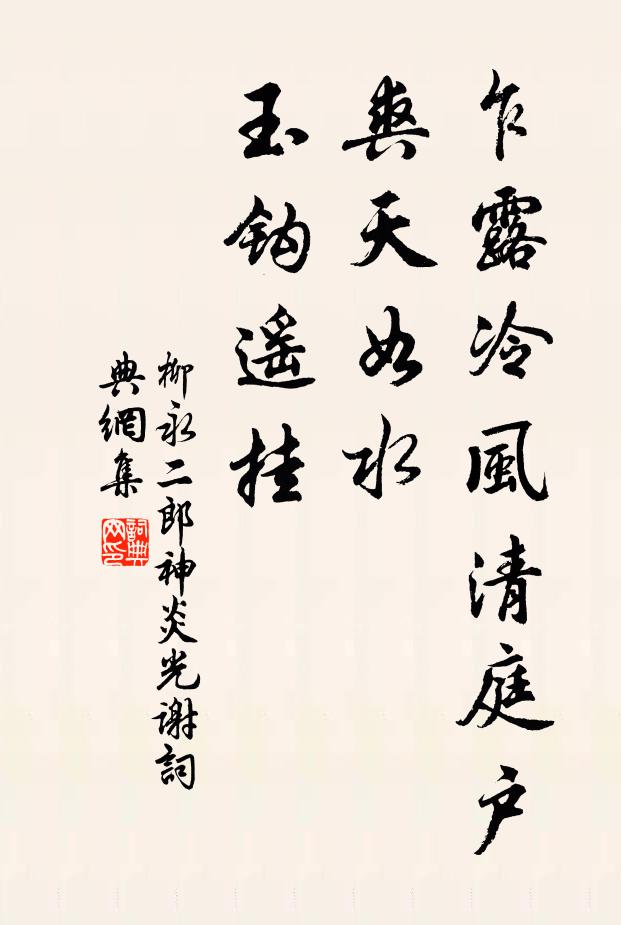 乍露冷風清庭户
爽天如水
玉鈎遥挂
柳永二郎神炎光謝詞
典網集
詞典网印